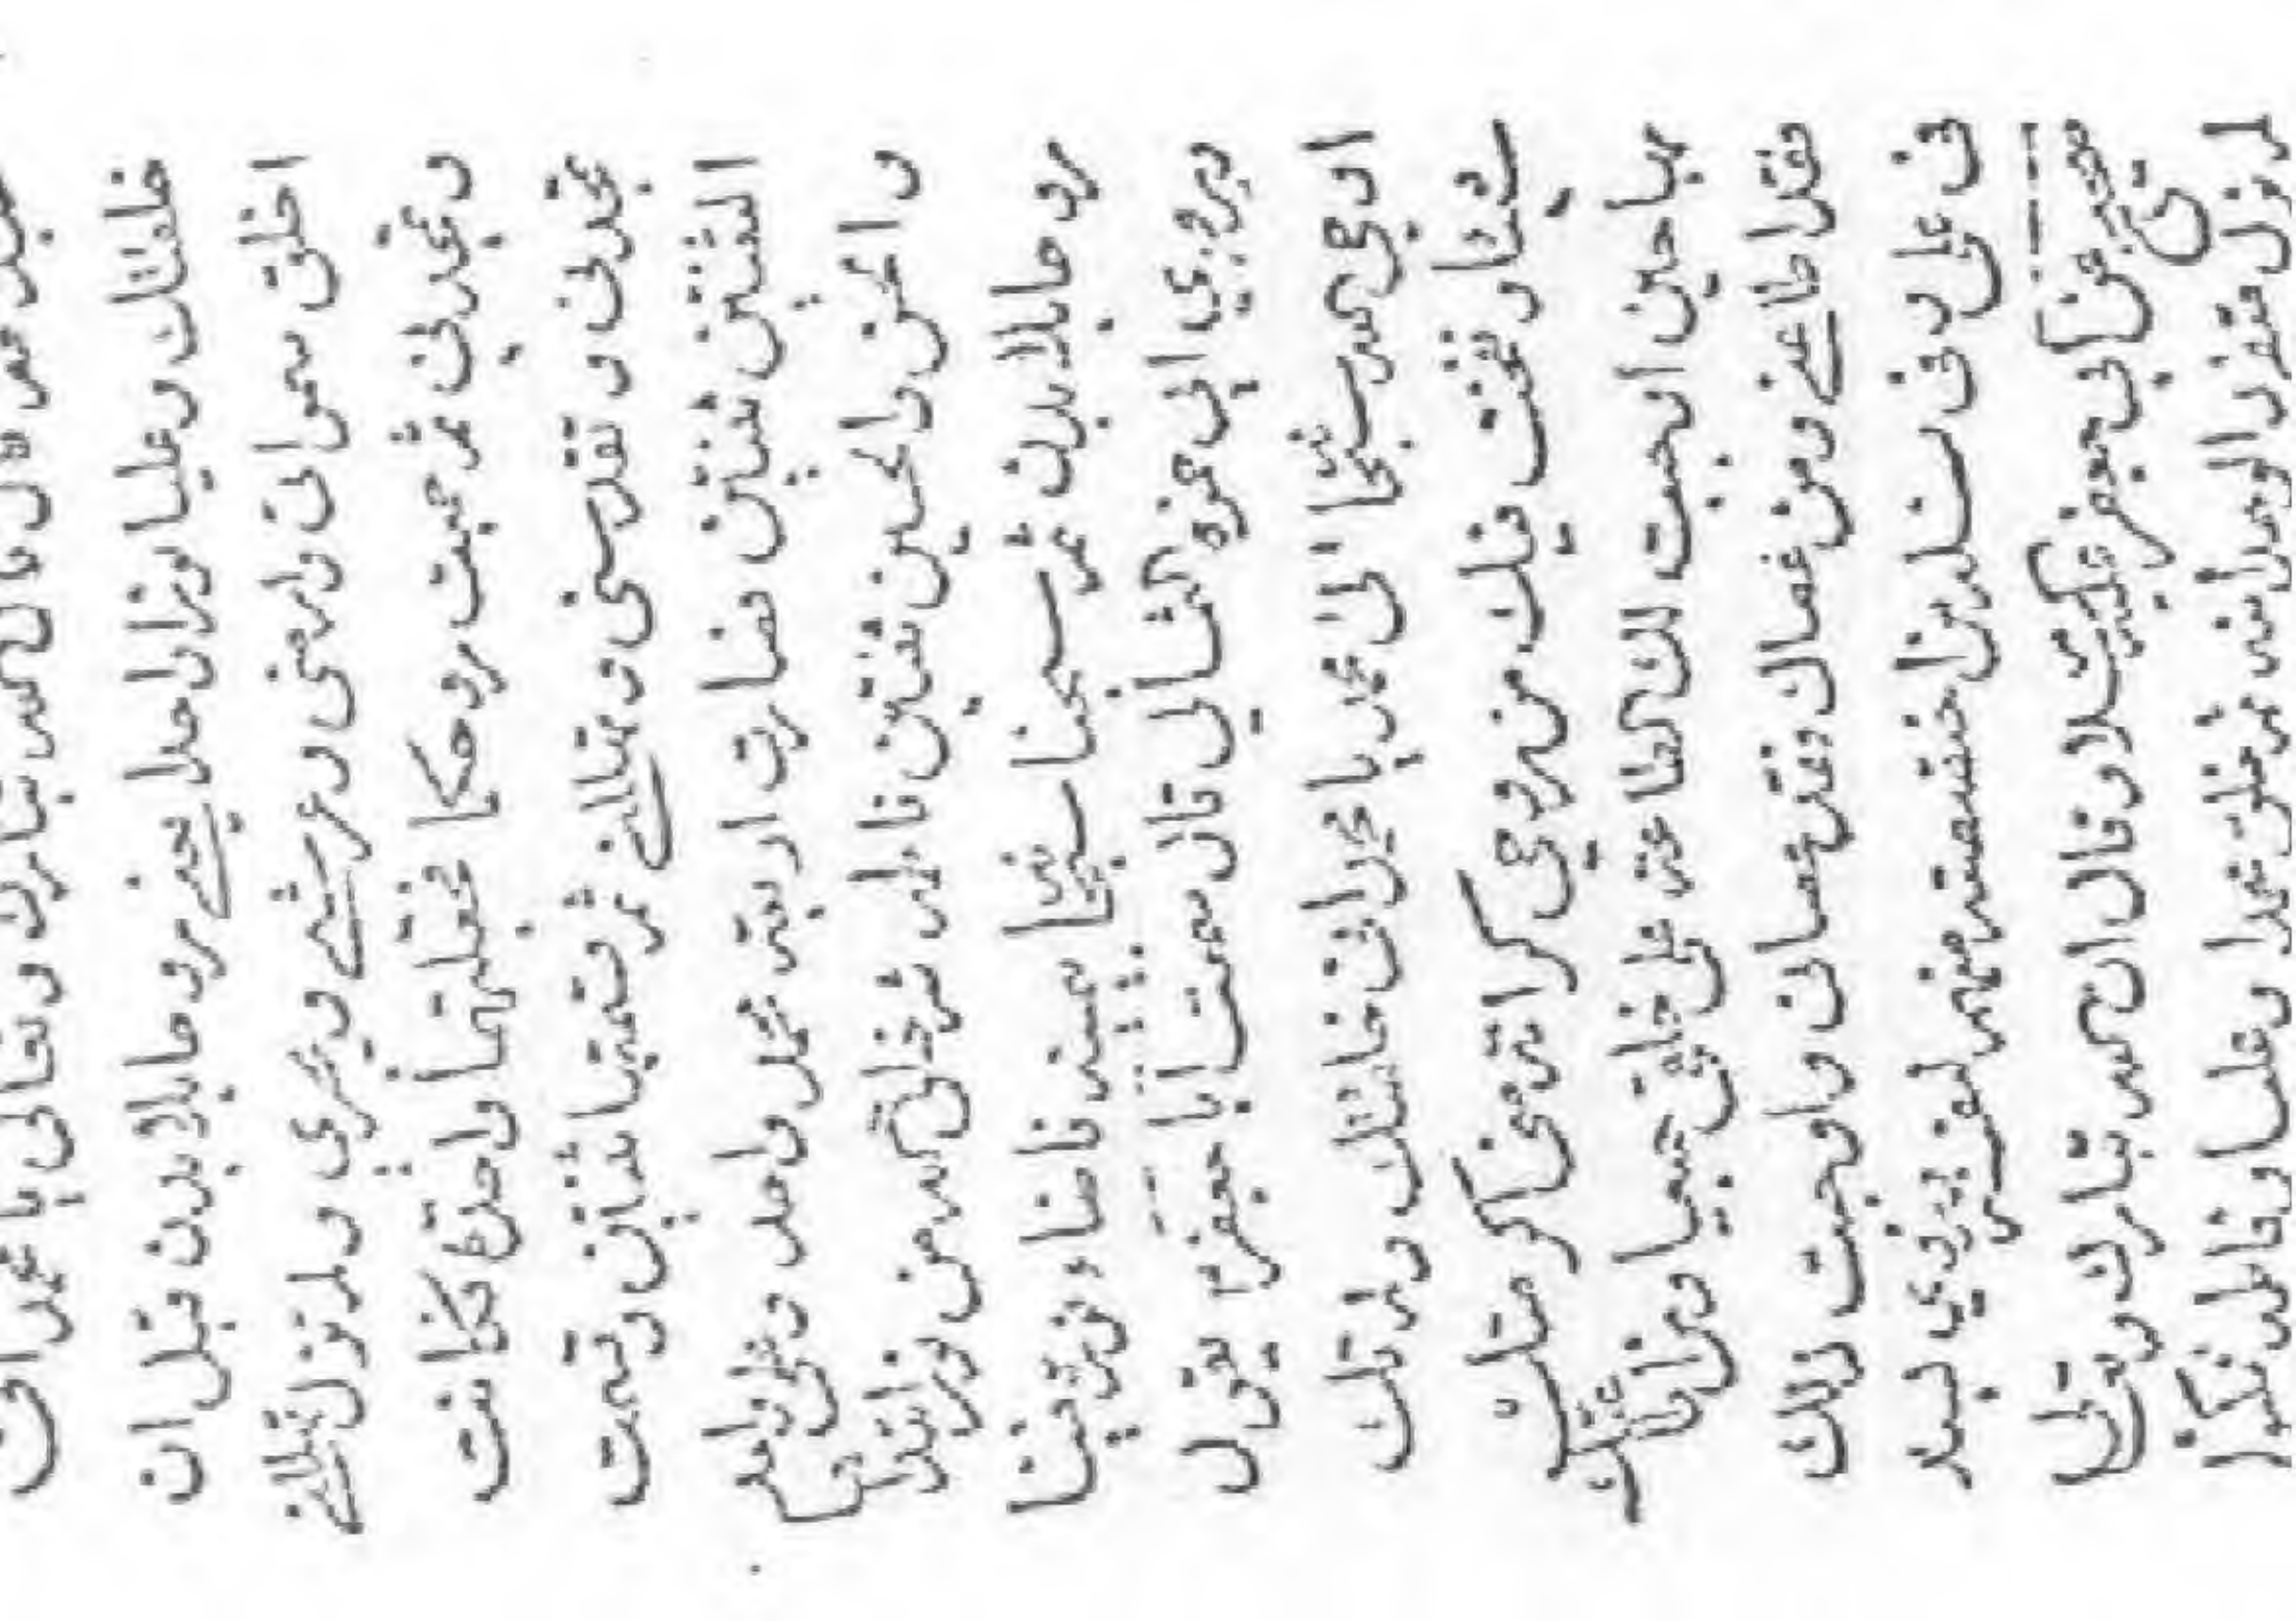 قال قال الله تبارك وتعالى يا محمد اني
خلقتك وعليا نورا واحدا يعني روحا بلا بدن قبل ان
اخلق سمواتي وارضي وعرشي وبحري ولم تزل تهللني
وتمجدني ثم جمعت روحكما فجعلتهما واحدة فكانت
تمجدني وتقدسني وتهللني ثم قسمتها ثنتين وقسمت
الثنتين ثنتين فصارت اربعة محمد واحد وعلي واحد
والحسن والحسين ثنتين فاطمه ثم خلق الله من نور ابتداها
روحا بلا بدن ثم مسحنا بيمينه فاضاء نوره فينا
الى ابي حمزه الثمالي قال سمعت ابا جعفر يقول
اوحى الله الى محمد يا محمد اني خلقتك ولم تك
شيئا ونفخت فيك من روحي كرامة مني اكرمتك
بها حين اوجبت لك الطاعة على خلقي جميعا
فقد اطاعني ومن عصاك فقد عصاني واوجبت ذلك
في علي وفي نسله من اختصصته منهم لنفسي
عن ابي جعفر عليه السلام قال ان الله تبارك وتعالى
لم يزل متفردا ثم خلق محمدا وعليا وفاطمه